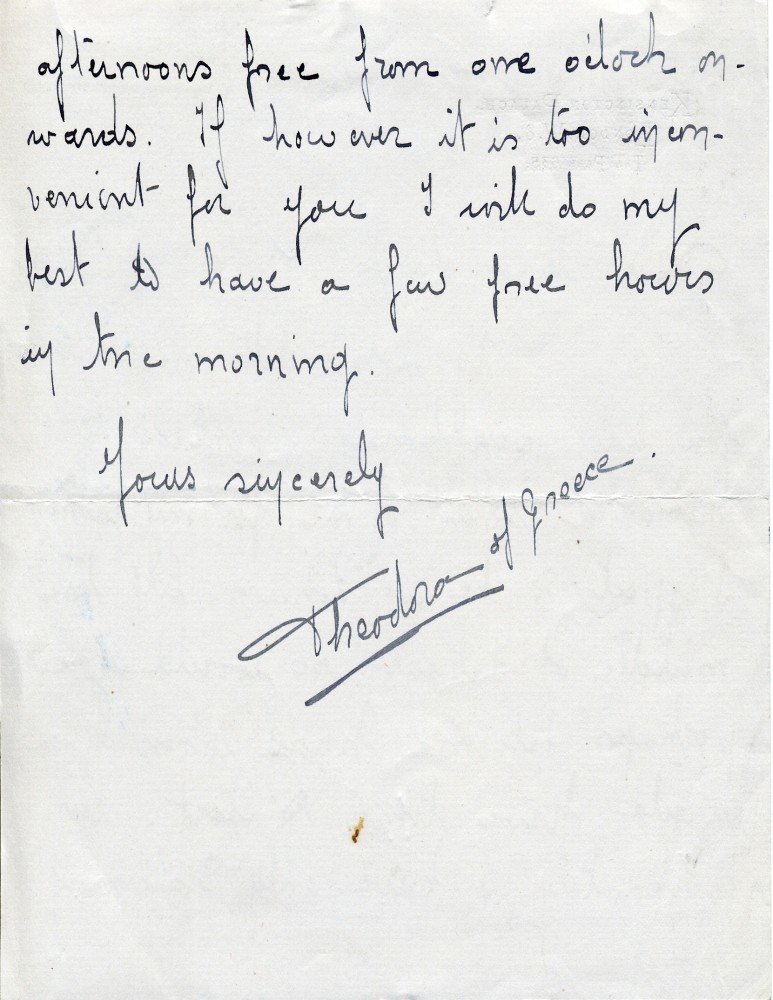 afternoons free from one o'clock on-
wards. If however it is too incon-
venient for you I will do my
best to have a few free hours
in the morning.
Yours sincerely
Theodora of Greece.